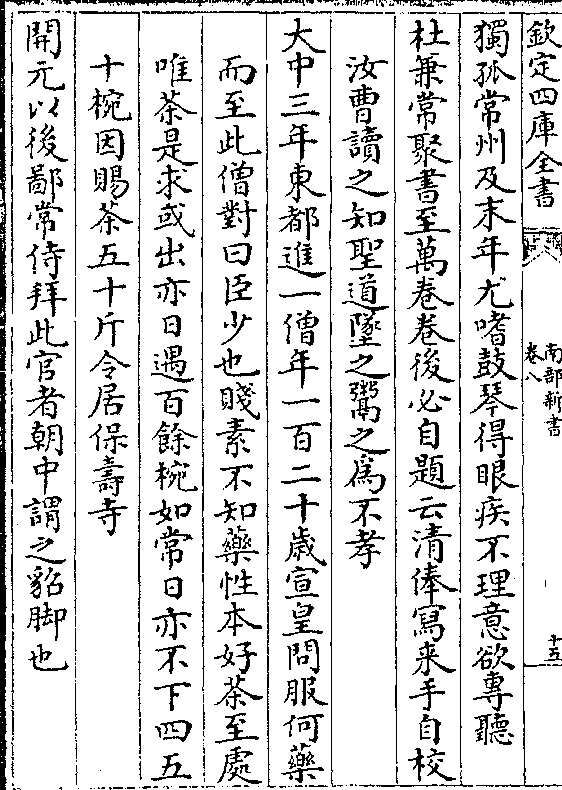 欽定四庫全書
南部新書
卷八
十五
獨孤常州及末年尤嗜鼓琴得眼疾不理意欲專聽
杜兼常聚書至萬卷卷後必自題云清俸寫来手自校
汝曹讀之知聖道墜之鬻之為不孝
大中三年東都進一僧年一百二十歲宣皇問服何藥
而至此僧對曰臣少也賤素不知藥性本好茶至處
唯茶是求或出亦日遇百餘椀如常日亦不下四五
十椀因賜茶五十斤令居保壽寺
開元以後鄙常侍拜此官者朝中謂之貂脚也